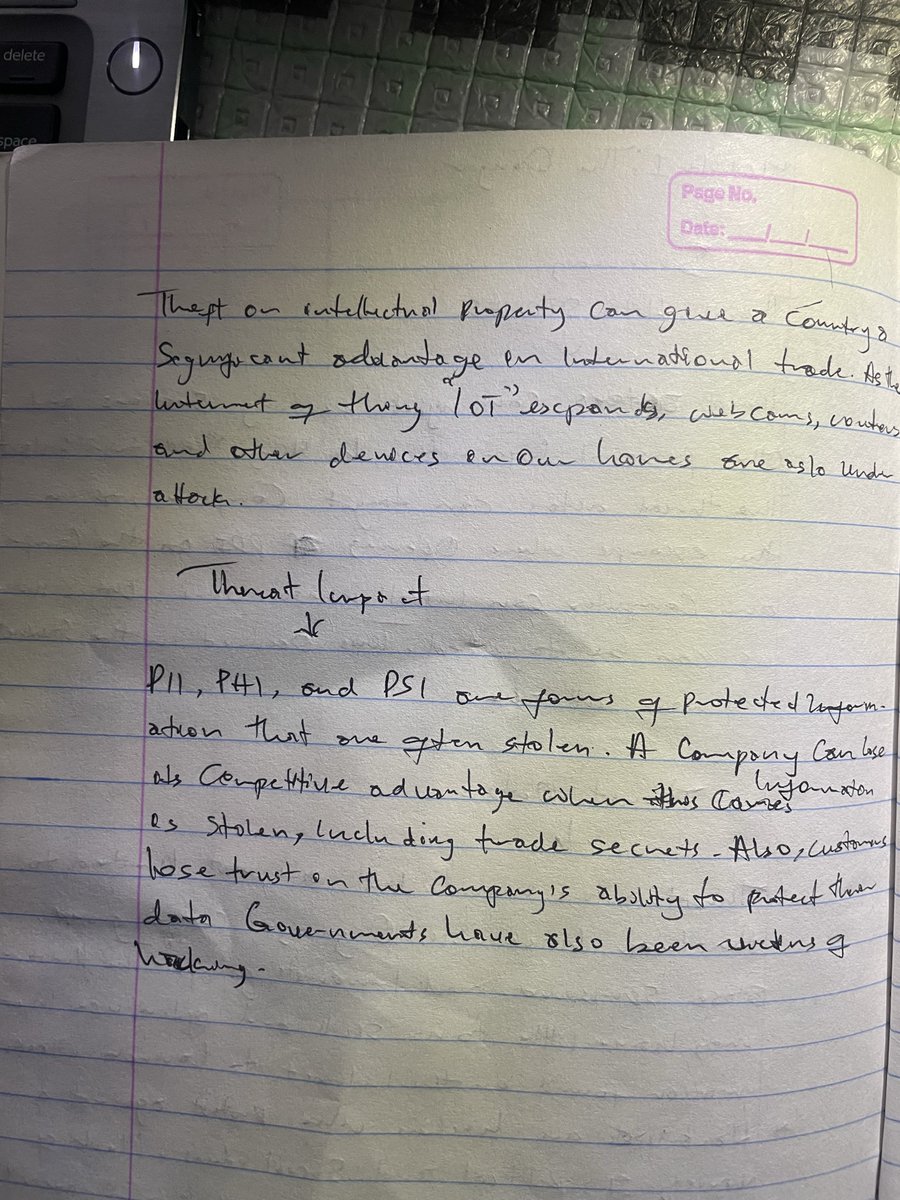 delete
space
Page No.
Date: __/__/__
Theft on intellectual Property Can give a Country a
Significant addantage in International trade. As the
Internet of thing "IoT" expands, webcams, routers
and other devices in our homes are aslo under
attack.
Threat Impact
PII, PHI, and PSI are forms of protected Inform-
ation that are often stolen. A Company Can lose
its Competitive advantage when this Information
is stolen, Including trade secrets. Also, customers
lose trust in the Company's ability to protect their
data Governments have also been victims of
hacking.